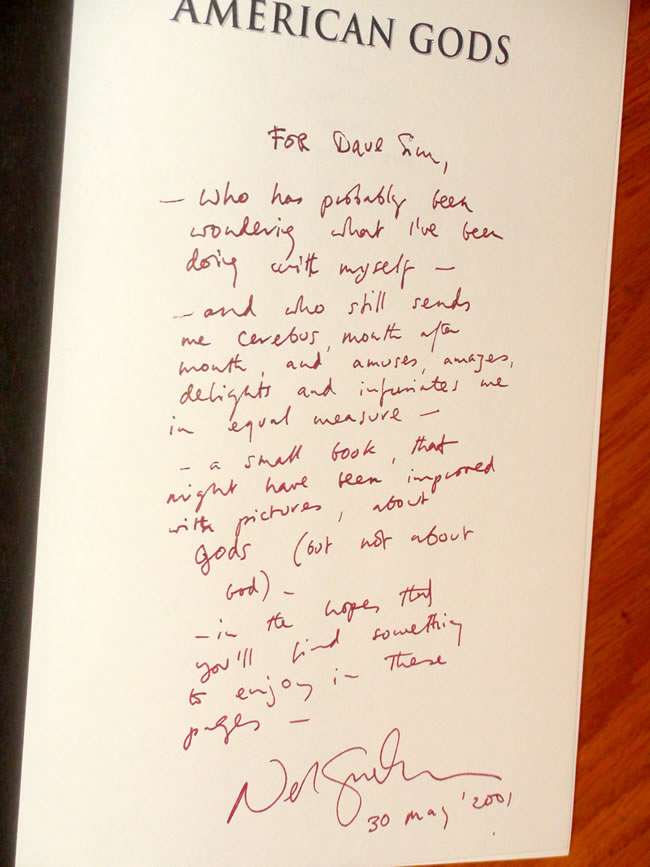 AMERICAN GODS
FOR Dave Sim,
— who has probably been
wondering what I've been
doing with myself —
— and who still sends
me Cerebus, month after
month, and amuses, amazes,
delights and infuriates me
in equal measure —
— a small book, that
might have been improved
with pictures, about
Gods (but not about
God) —
— in the hopes that
you'll find something
to enjoy in these
pages —
Neil Gaiman
30 May '2001